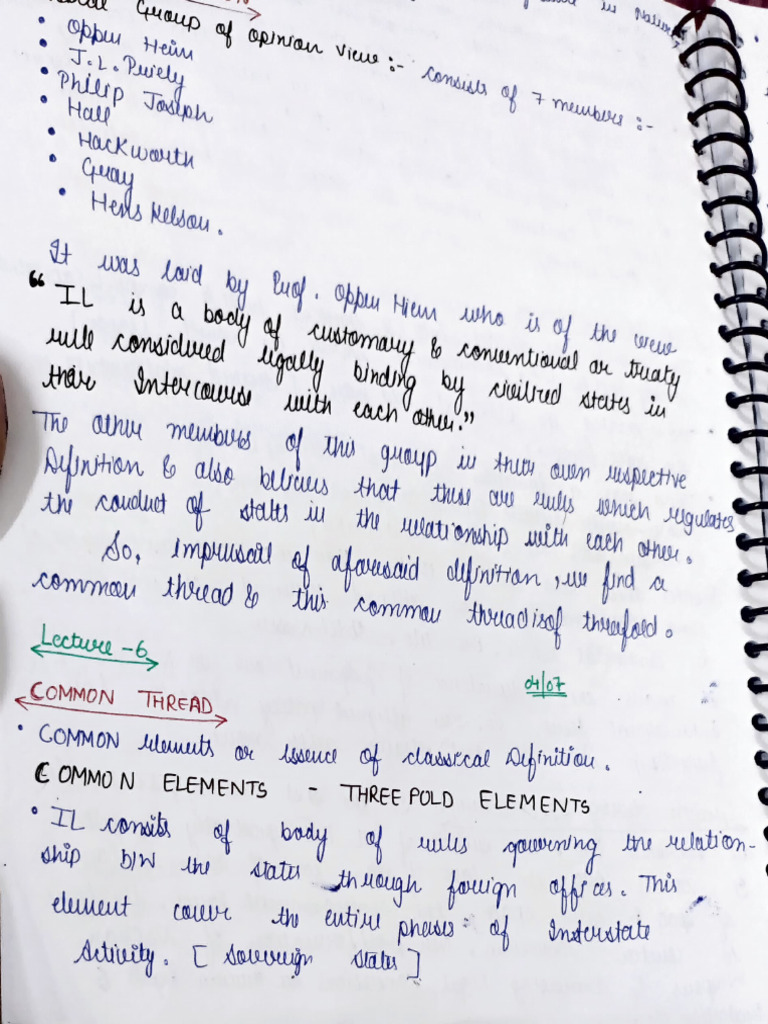 Group of opinion view :- consists of 7 members :-
• Oppen Heim
• J.L. Purely
• Philip Joseph
• Hall
• Hackworth
• Gray
• Hens Kelson.
It was laid by Prof. Oppen Hiem who is of the view
“ IL is a body of customary & conventional or treaty
rule considered legally binding by civilized states in
their Intercourse with each other.”
The other members of this group in their own respective
Definition & also believes that these are rules which regulates
the conduct of states in the relationship with each other.
So, of aforesaid definition, we find a
common thread & this common thread is of threefold.
Lecture - 6
04/07
COMMON THREAD
• COMMON elements or essence of classical Definition.
COMMON ELEMENTS - THREE FOLD ELEMENTS
• IL consits of body of rules governing the relation-
ship b/w the states through foreign offices. This
element cover the entire phases of Interstate
Activity. [ Sovereign states ]